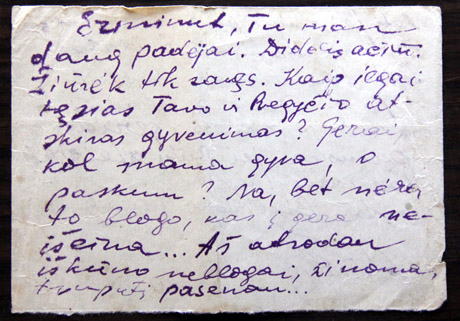 Erminut, Tu man
daug padėjai. Didelis ačiū.
Žiūrėk tik savęs. Kaip ilgai
tęsias Tavo ir at-
skiras gyvenimas? Gerai,
kol mama gyva, o
paskum? Na, bet nėra
to blogo, kas į gera ne-
išeina... Aš atrodau
iškūno neblogai, žinoma,
truputį pasenau...